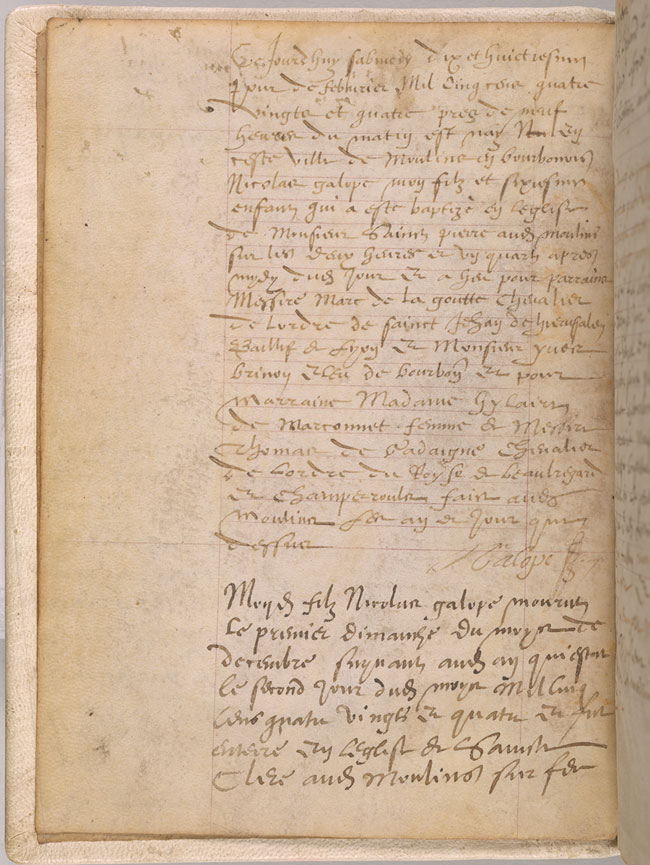 Ce Jourdhuy sabmedy dix et huictiesme
Jour de febvrier Mil Cinq cens quatre
vingts et quatre pres de neuf
heures du matin est nay en
ceste ville de Moulins en bourbonnois
Nicolas galope mon filz et sixiesme
enfant qui a este baptizé en leglise
de Monsieur Sainct pierre aud moulins
sur les deux heures et ung quart apres
mydy dud Jour et a heu pour parrains
Messire Marc de la goutte Chevalier
de lordre de sainct Jehan de hierusalem
Baillif de Lyon et Monsieur yves
brinon esleu de bourbon et pour
marraine Madame hylaire
de Marconnet femme de Messire
Thomas de Cadaigne Chevalier
de Lordre du Roy sr de beaulregard
et Champeroulx faict aud
Moulins les an et Jour que
dessus
Galope
Mond filz Nicolas galope mourut
Le premier dimanche du moys de
decembre suyvant aud an qui estoit
le second Jour dud moys Mil Cinq
Cens quatre vingts et quatre et fut
enterré en leglise de Saincte
Clere aud Moulins